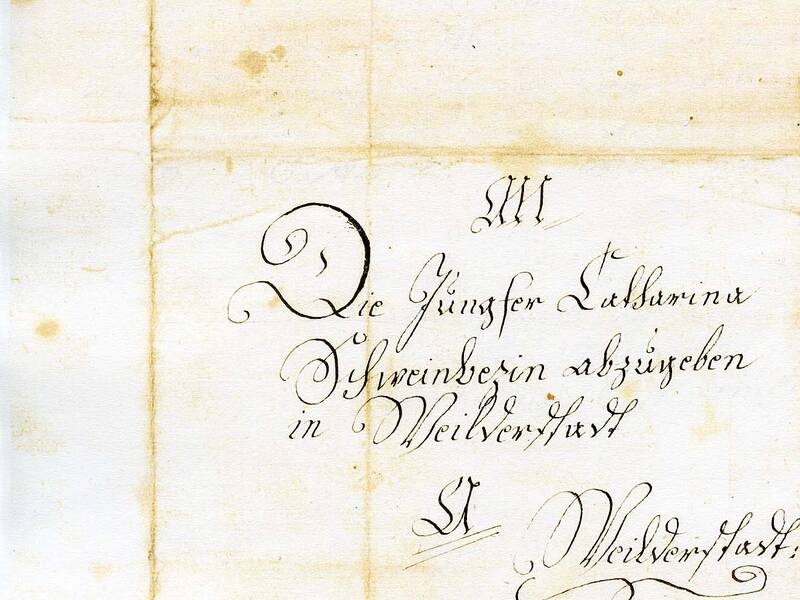 An
Die Jungfer Catharina
Schweinbezin abzugeben
in Weilderstadt
A Weilderstadt: